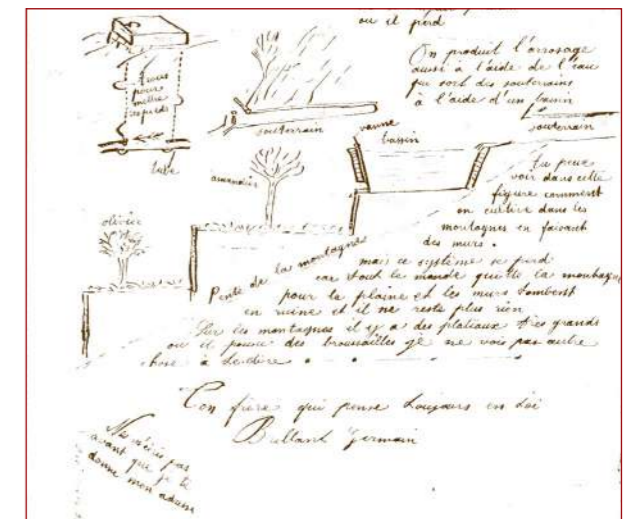 ou il perd
On produit l'arrosage
aussi à l'aide de l'eau
qui sort des souterrains
à l'aide d'un bassin
trous
pour
mettre
les pieds
tube
souterrain
vanne
bassin
souterrain
amandier
olivier
Pente de la montagne
tu peux
voir dans cette
figure comment
on cultive dans les
montagnes en faisant
des murs.
mais ce système se perd
car tout le monde quitte la montagne
pour la plaine et les murs tombent
en ruine et il ne reste plus rien
Sur les montagnes il y a des plateaux très grands
ou il pousse des broussailles je ne vois pas autre
chose à te dire
Ton frère qui pense toujours en toi
Germain
Ne m'écris pas
avant que je te
donne mon adresse